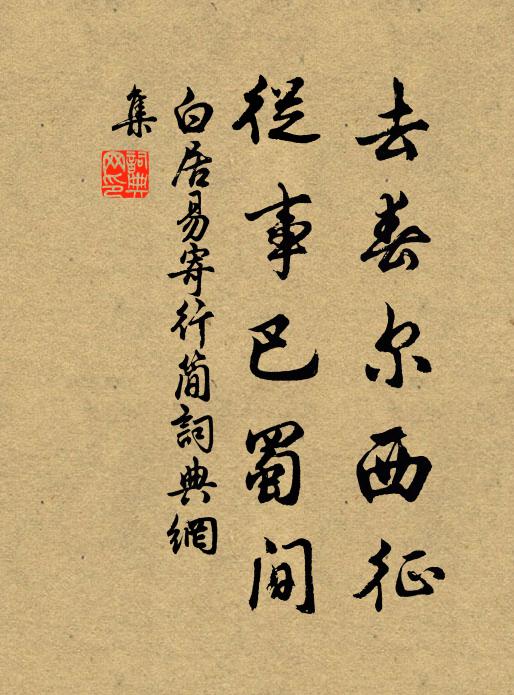 去春尔西征
從事巴蜀间
白居易寄行简詞典網
集
詞典网印